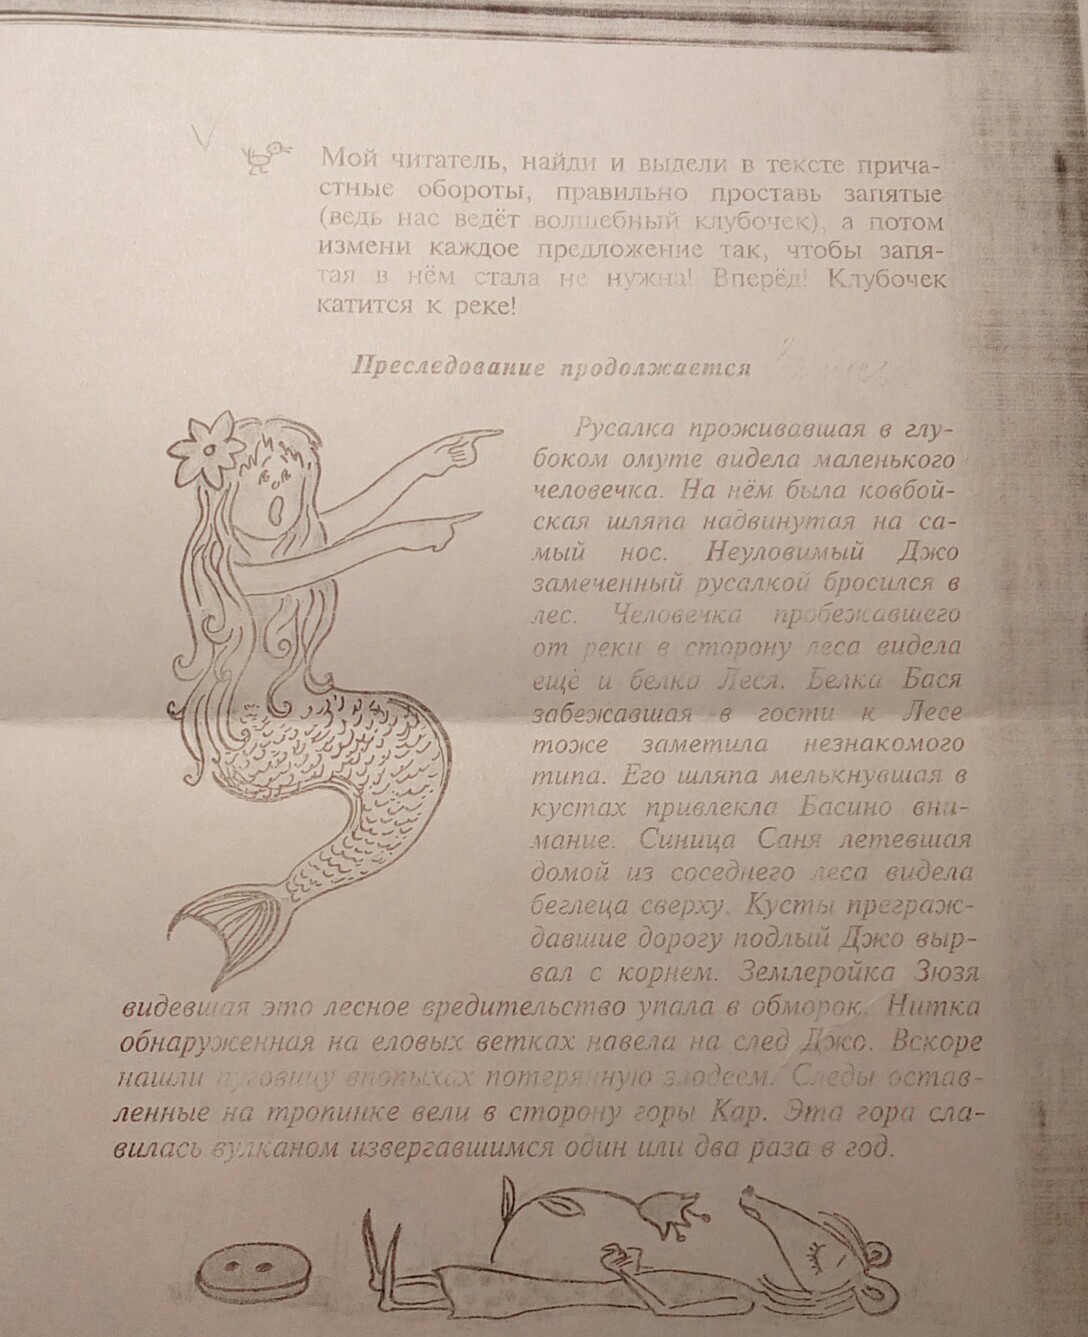 Мой читатель, найди и выдели в тексте прича-
стные обороты, правильно проставь запятые
(ведь нас ведёт волшебный клубочек), а потом
измени каждое предложение так, чтобы запя-
тая в нём стала не нужна! Вперёд! Клубочек
катится к реке!
Преследование продолжается
Русалка проживавшая в глу-
боком омуте видела маленького
человечка. На нём была ковбой-
ская шляпа надвинутая на са-
мый нос. Неуловимый Джо
замеченный русалкой бросился в
лес. Человечка пробежавшего
от реки в сторону леса видела
ещё и белка Леся. Белка Бася
забежавшая в гости к Лесе
тоже заметила незнакомого
типа. Его шляпа мелькнувшая в
кустах привлекла Басино вни-
мание. Синица Саня летевшая
домой из соседнего леса видела
беглеца сверху. Кусты преграж-
давшие дорогу подлый Джо выр-
вал с корнем. Землеройка Зюзя
видевшая это лесное вредительство упала в обморок. Нитка
обнаруженная на еловых ветках навела на след Джо. Вскоре
нашли пуговицу впопыхах потерянную злодеем. Следы остав-
ленные на тропинке вели в сторону горы Кар. Эта гора сла-
вилась вулканом извергавшимся один или два раза в год.